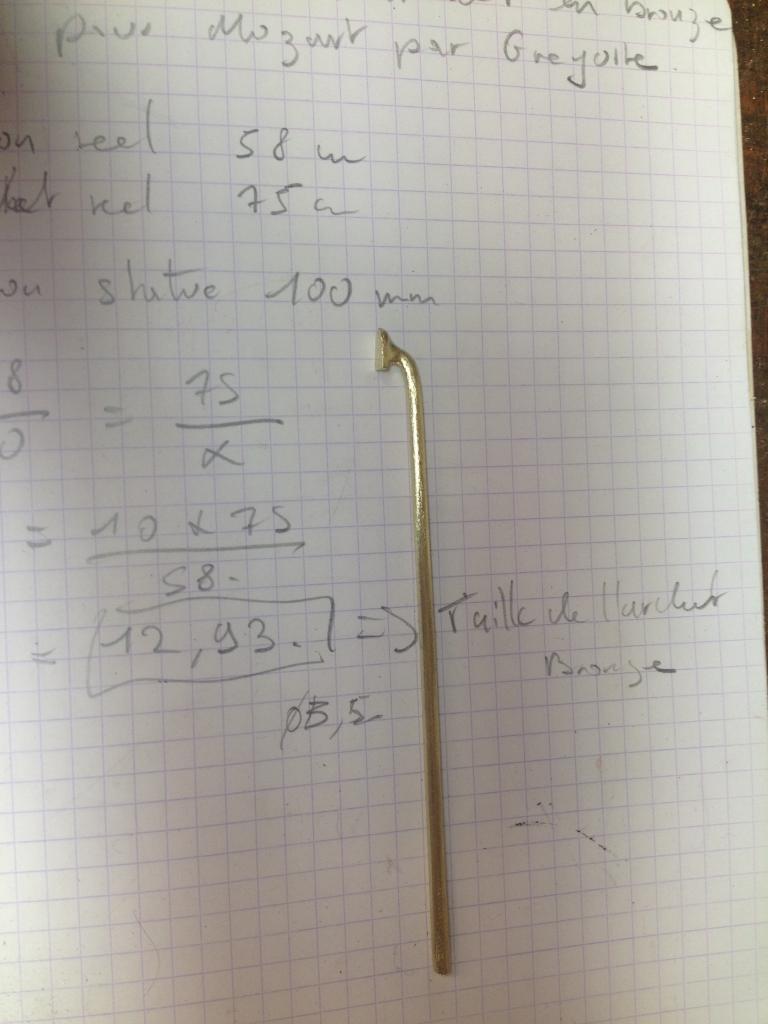 en bronze
pour Mozart par Gregoire.
reel 58 cm
reel 75 cm
statue 100 mm
8/0 = 75/x
= 10 x 75/58.
= 12,93. => Taille de l'archet
Bronze